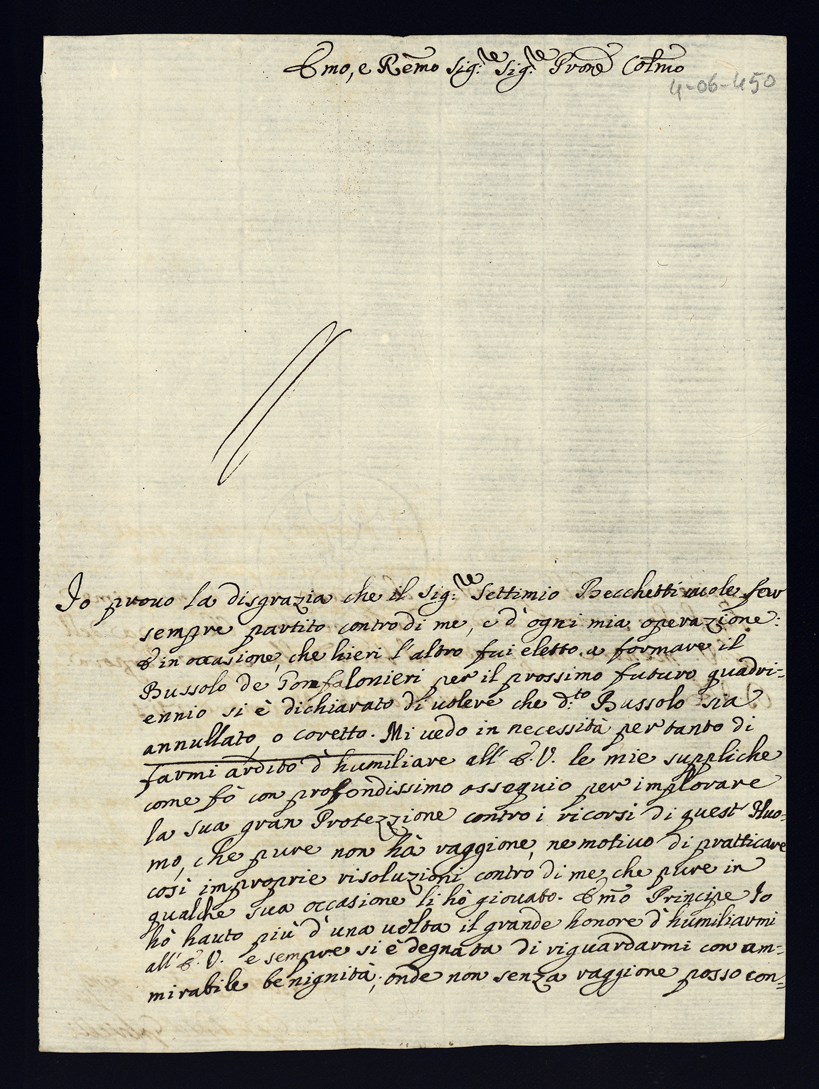 Emo, e Remo Sig.re Sig.re Prone Colmo
4-06-450
Io provo la disgrazia che il Sig.re Settimio Becchetti vuole far
sempre partito contro di me, e d'ogni mia operazione:
E in occasione, che hieri l'altro fui eletto a formare il
Bussolo de Gonfalonieri per il prossimo futuro quadri-
ennio si è dichiarato di volere che d.to Bussolo sia
annullato, o coretto. Mi vedo in necessità per tanto di
farmi ardito d'humiliare all'E.V. le mie suppliche
come fò con profondissimo ossequio per implorare
la sua gran Protezzione contro i ricorsi di quest'Huo-
mo, che pure non hà raggione, ne motivo di pratticare
così improprie risoluzioni contro di me, che pure in
qualche sua occasione li hò giovato. Emo Principe Io
hò hauto più d'una volta il grande honore d'humiliarmi
all'E.V. e sempre si è degnata di riguardarmi con am-
mirabile benignità; onde non senza raggione posso con-